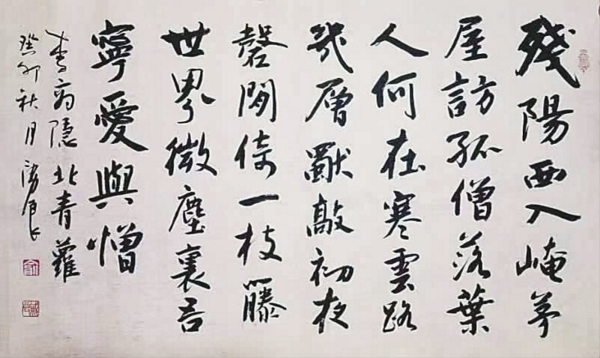 殘陽西入崦茅
屋訪孤僧落葉
人何在寒雲路
幾層獨敲初夜
磬閒倚一枝籐
世界微塵裏吾
寧愛與憎
李商隱北青蘿
癸卯秋月